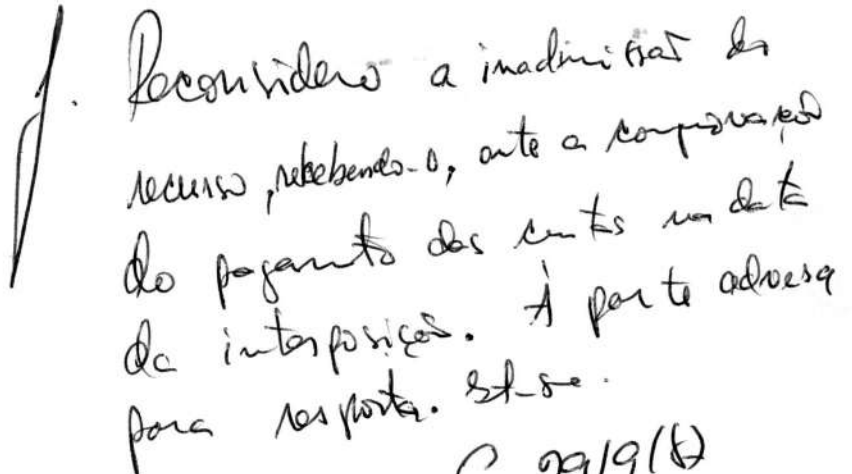 J. Reconsidero a inadmissão do
recurso, recebendo-o, ante a comprovação
do pagamento das custas na data
da interposição. À parte adversa
para resposta. Int-se.
C. 29/9/